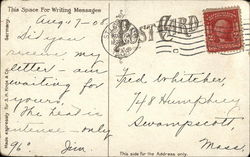 This Space For Writing Messages
POST CARD
Aug 7-08
Did you
receive my
letter am
waiting for
yours.
The heat is
intense only
96° Jim
Fred Whitcher,
48 Humphrey
Swampscott,
Mass.
Germany.
This side for the Address only.